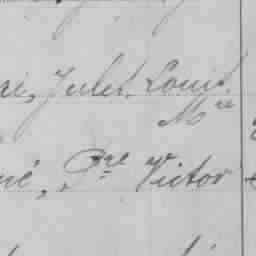 Jules Louis.
Mre
né, Pre Victor